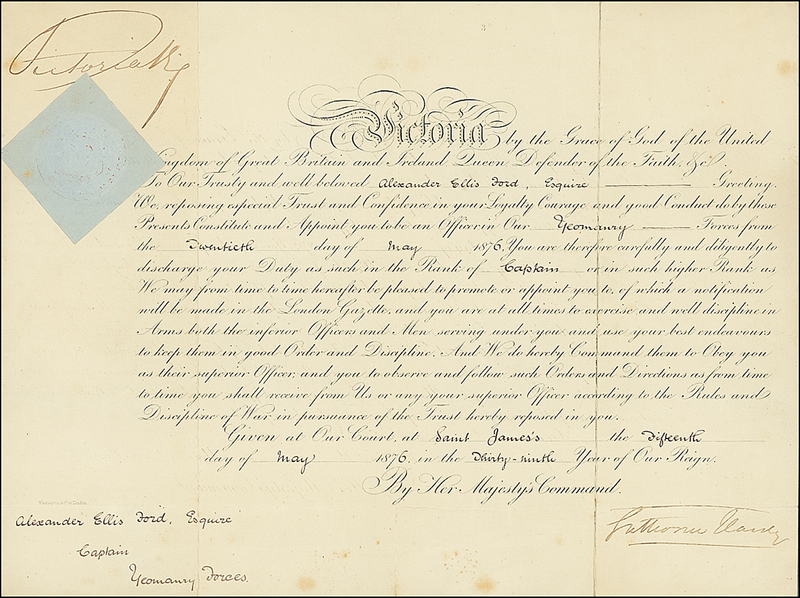 Victoria R
Victoria by the Grace of God of the United
Kingdom of Great Britain and Ireland Queen Defender of the Faith, &c.
To Our Trusty and well beloved Alexander Ellis Ford, Esquire Greeting.
We, reposing especial Trust and Confidence in your Loyalty Courage and good Conduct do by these
Presents Constitute and Appoint you to be an Officer in Our Yeomanry Forces from
the Twentieth day of May 1876. You are therefore carefully and diligently to
discharge your Duty as such in the Rank of Captain or in such higher Rank as
We may from time to time hereafter be pleased to promote or appoint you to, of which a notification
will be made in the London Gazette, and you are at all times to exercise and well discipline in
Arms both the inferior Officers and Men serving under you and use your best endeavours
to keep them in good Order and Discipline. And We do hereby Command them to Obey you
as their superior Officer, and you to observe and follow such Orders and Directions as from time
to time you shall receive from Us or any your superior Officer according to the Rules and
Discipline of War in pursuance of the Trust hereby reposed in you.
Given at Our Court, at Saint James's the Fifteenth
day of May 1876, in the Thirty-ninth Year of Our Reign.
By Her Majesty's Command.
Alexander Ellis Ford, Esquire
Captain
Yeomanry Forces.
Gathorne Hardy